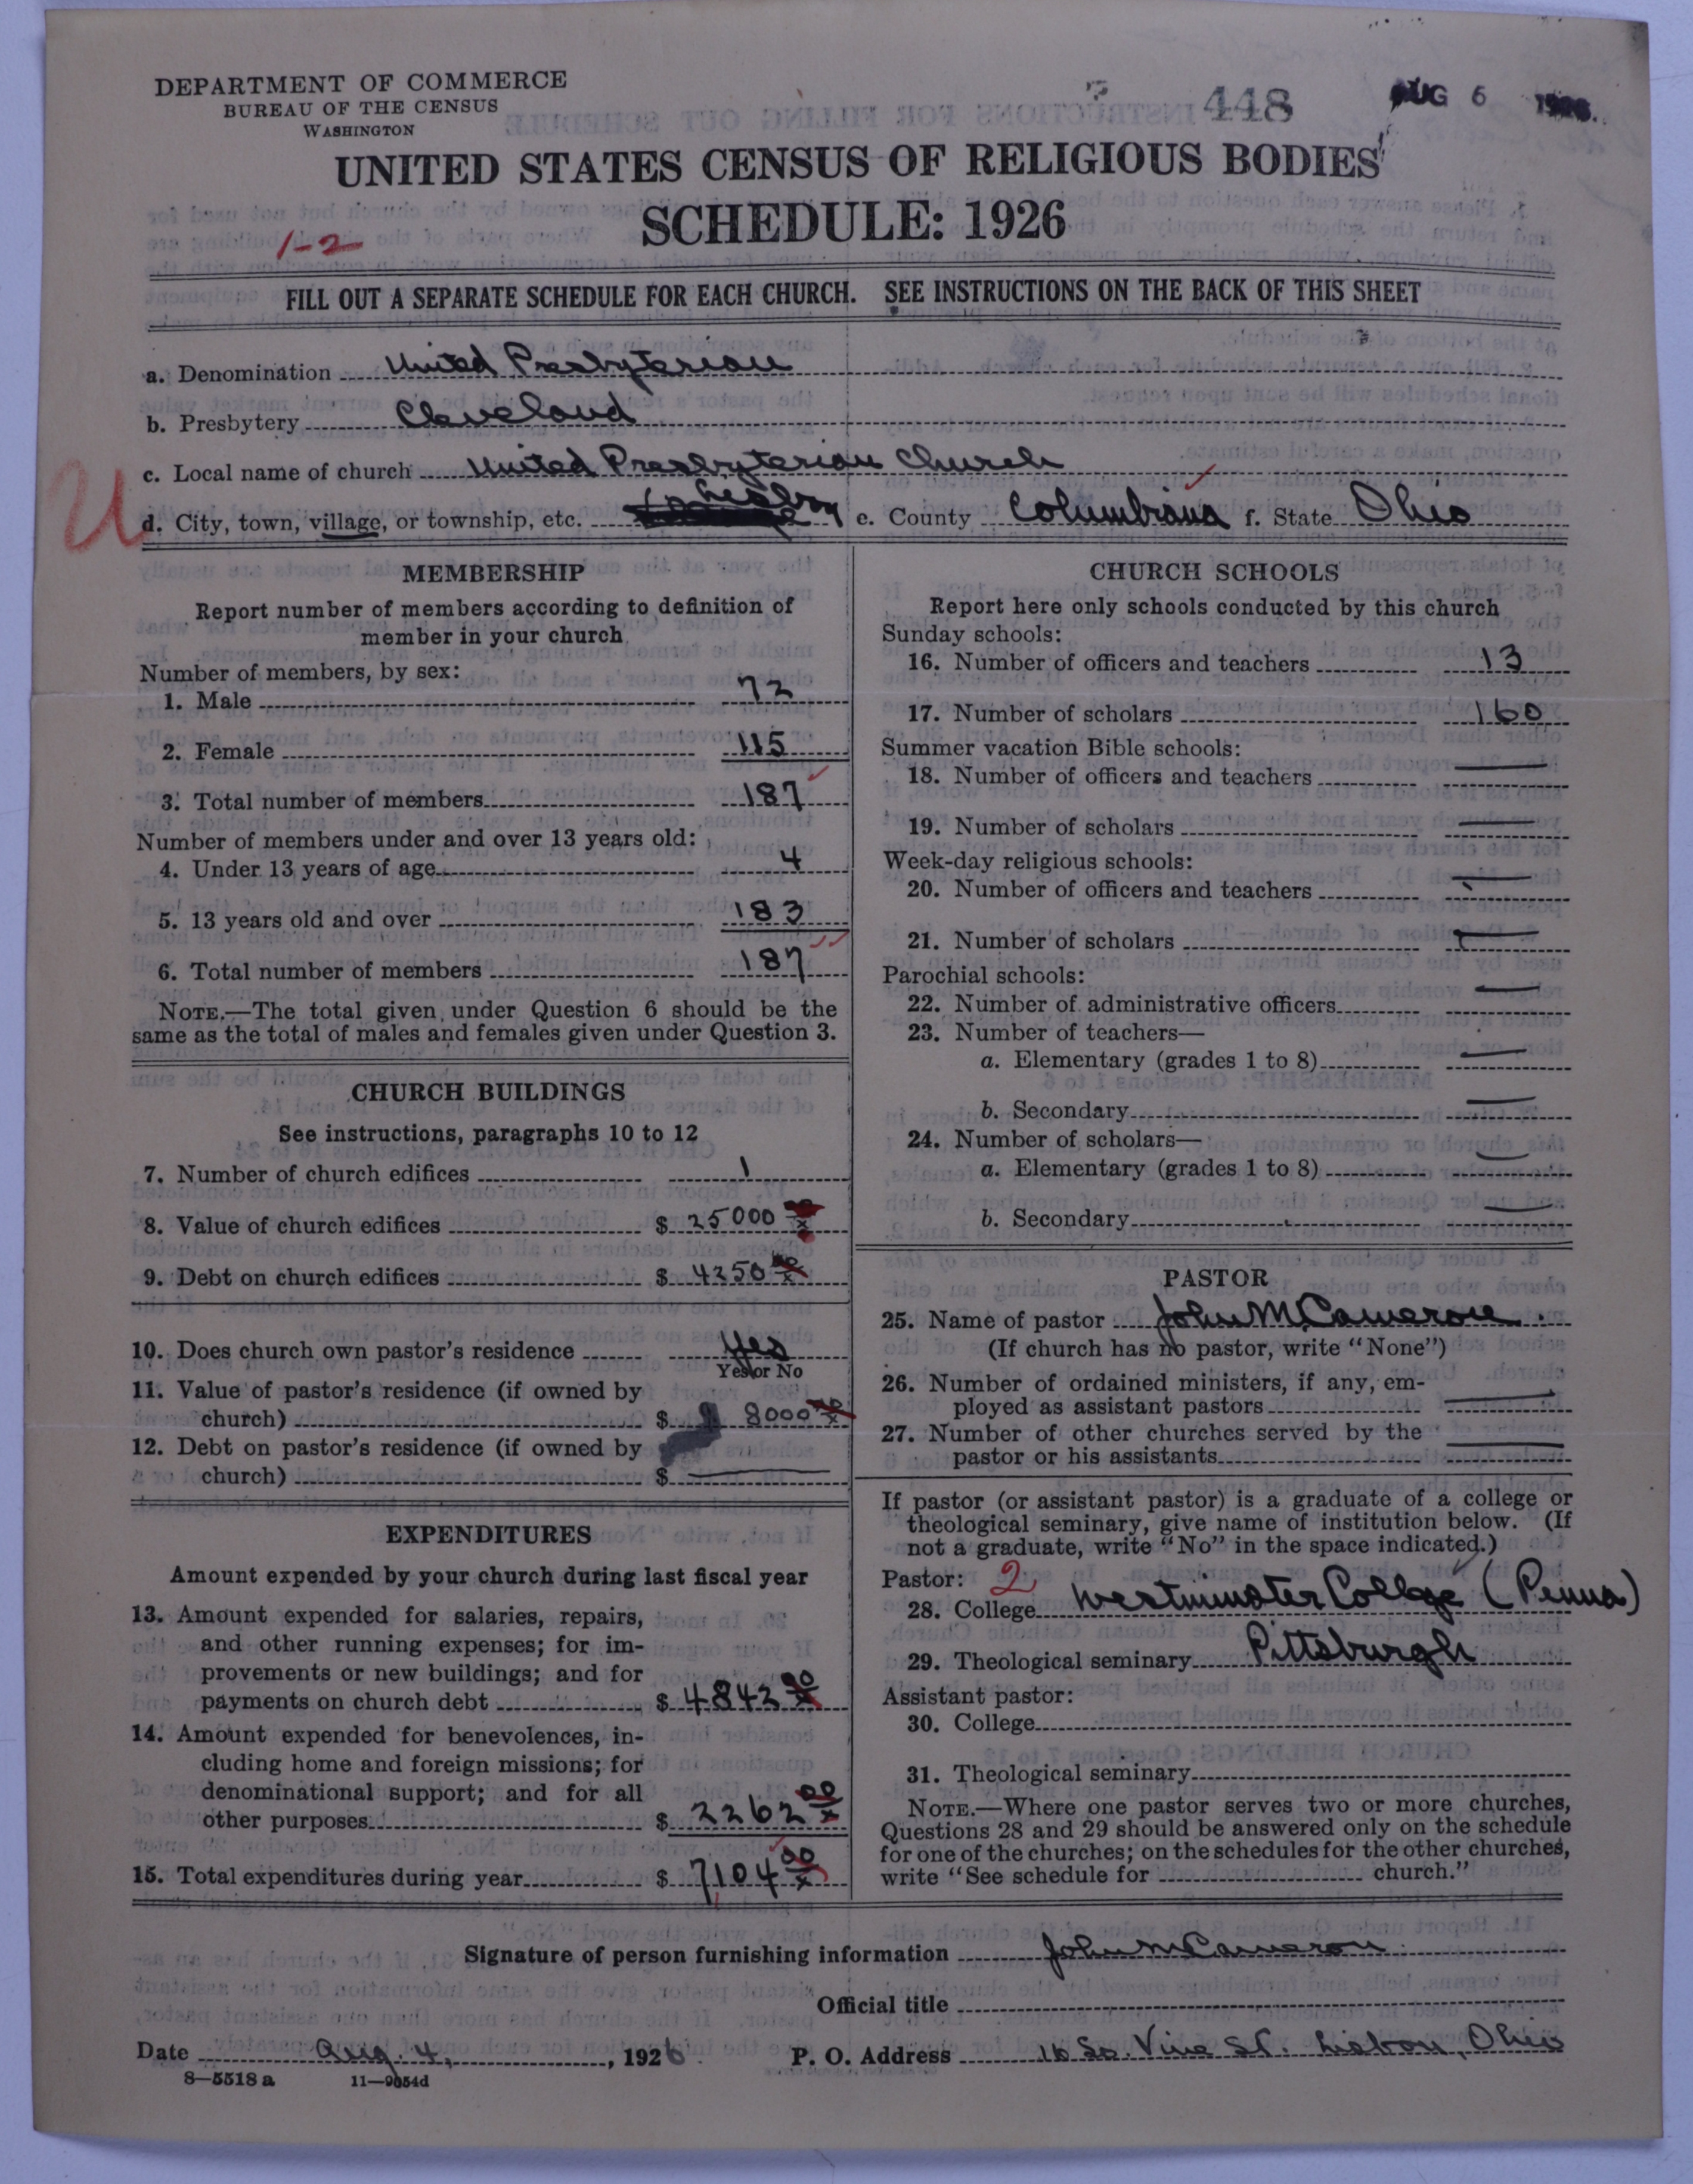 DEPARTMENT OF COMMERCE
BUREAU OF THE CENSUS
WASHINGTON
448
AUG 6 1926
UNITED STATES CENSUS OF RELIGIOUS BODIES
SCHEDULE: 1926
1-2
FILL OUT A SEPARATE SCHEDULE FOR EACH CHURCH. SEE INSTRUCTIONS ON THE BACK OF THIS SHEET
a. Denomination United Presbyterian
b. Presbytery Cleveland
c. Local name of church United Presbyterian Church
U
d. City, town, village, or township, etc. Lisbon e. County Columbiana f. State Ohio
MEMBERSHIP
Report number of members according to definition of
member in your church
Number of members, by sex:
1. Male 72
2. Female 115
3. Total number of members 187
Number of members under and over 13 years old:
4. Under 13 years of age 4
5. 13 years old and over 183
6. Total number of members 187
NOTE.—The total given under Question 6 should be the
same as the total of males and females given under Question 3.
CHURCH BUILDINGS
See instructions, paragraphs 10 to 12
7. Number of church edifices 1
8. Value of church edifices $ 25000
9. Debt on church edifices $ 4250
10. Does church own pastor's residence Yes
Yes or No
11. Value of pastor's residence (if owned by
church) $ 8000
12. Debt on pastor's residence (if owned by
church) $ —
EXPENDITURES
Amount expended by your church during last fiscal year
13. Amount expended for salaries, repairs,
and other running expenses; for im-
provements or new buildings; and for
payments on church debt $ 4842 00/x
14. Amount expended for benevolences, in-
cluding home and foreign missions; for
denominational support; and for all
other purposes $ 2262 00/x
15. Total expenditures during year $ 7104 00/x
CHURCH SCHOOLS
Report here only schools conducted by this church
Sunday schools:
16. Number of officers and teachers 13
17. Number of scholars 160
Summer vacation Bible schools:
18. Number of officers and teachers —
19. Number of scholars —
Week-day religious schools:
20. Number of officers and teachers —
21. Number of scholars —
Parochial schools:
22. Number of administrative officers —
23. Number of teachers—
a. Elementary (grades 1 to 8) —
b. Secondary —
24. Number of scholars—
a. Elementary (grades 1 to 8) —
b. Secondary —
PASTOR
25. Name of pastor John M. Cameron
(If church has no pastor, write "None")
26. Number of ordained ministers, if any, em-
ployed as assistant pastors —
27. Number of other churches served by the
pastor or his assistants —
If pastor (or assistant pastor) is a graduate of a college or
theological seminary, give name of institution below. (If
not a graduate, write "No" in the space indicated.)
Pastor: 2
28. College Westminster College (Penna)
29. Theological seminary Pittsburgh
Assistant pastor:
30. College
31. Theological seminary
NOTE.—Where one pastor serves two or more churches,
Questions 28 and 29 should be answered only on the schedule
for one of the churches; on the schedules for the other churches,
write "See schedule for church."
Signature of person furnishing information John M Cameron
Official title
Date Aug. 4, 1926. P. O. Address 16 So. Vine St. Lisbon, Ohio
8—5518 a 11—9054d